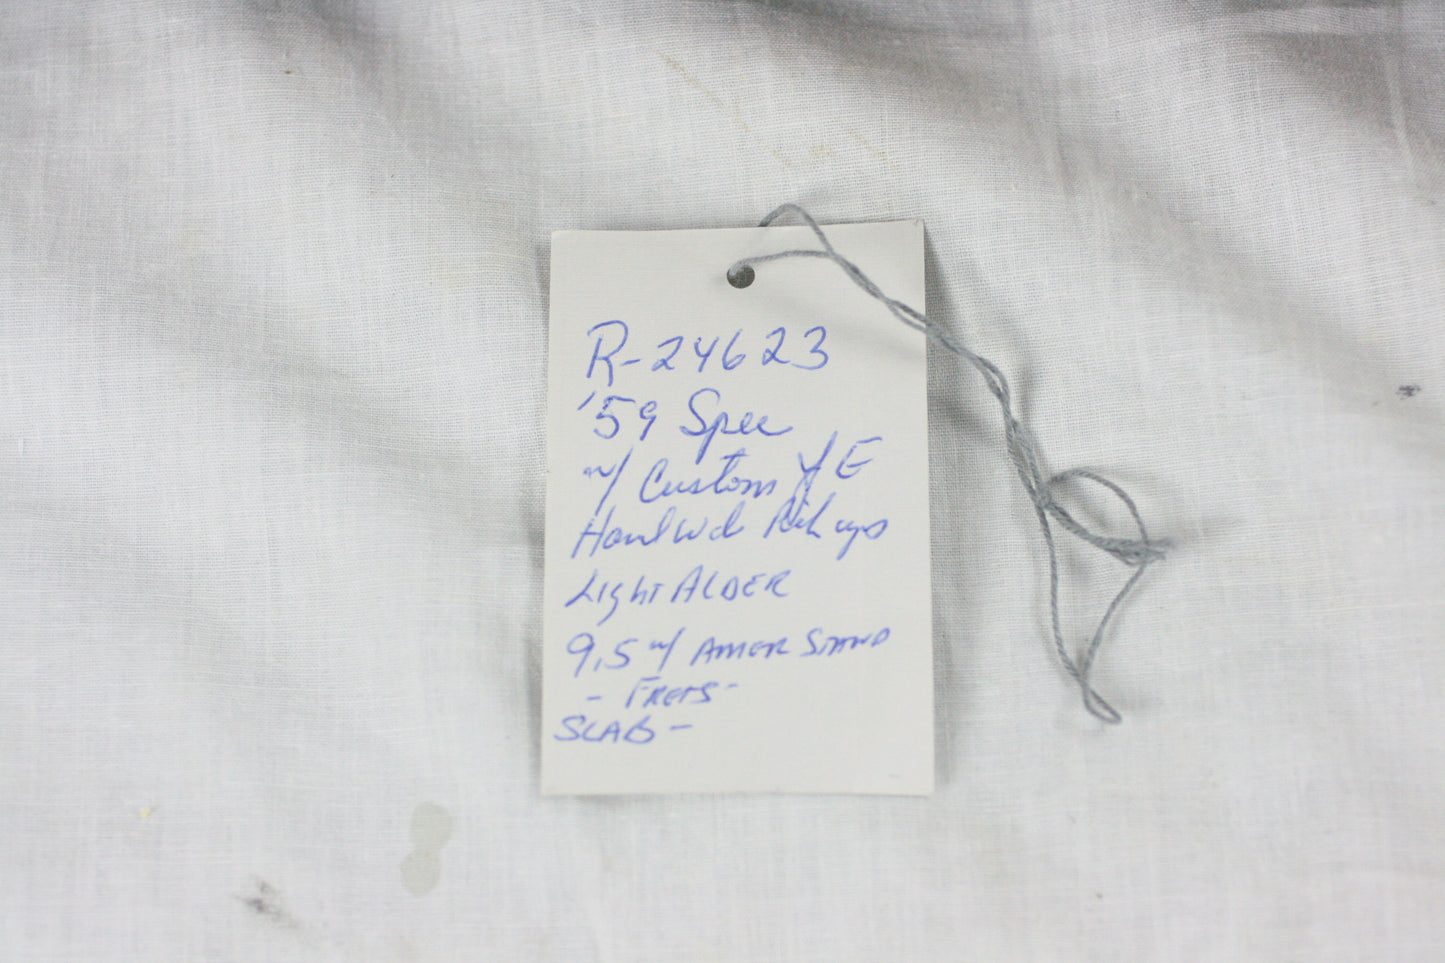 R-24623
'59 Spec
w/ Custom Y/E
Handwd Pickups
Light ALDER
9.5 w/ AMER STAND
- FRETS -
SLAB -